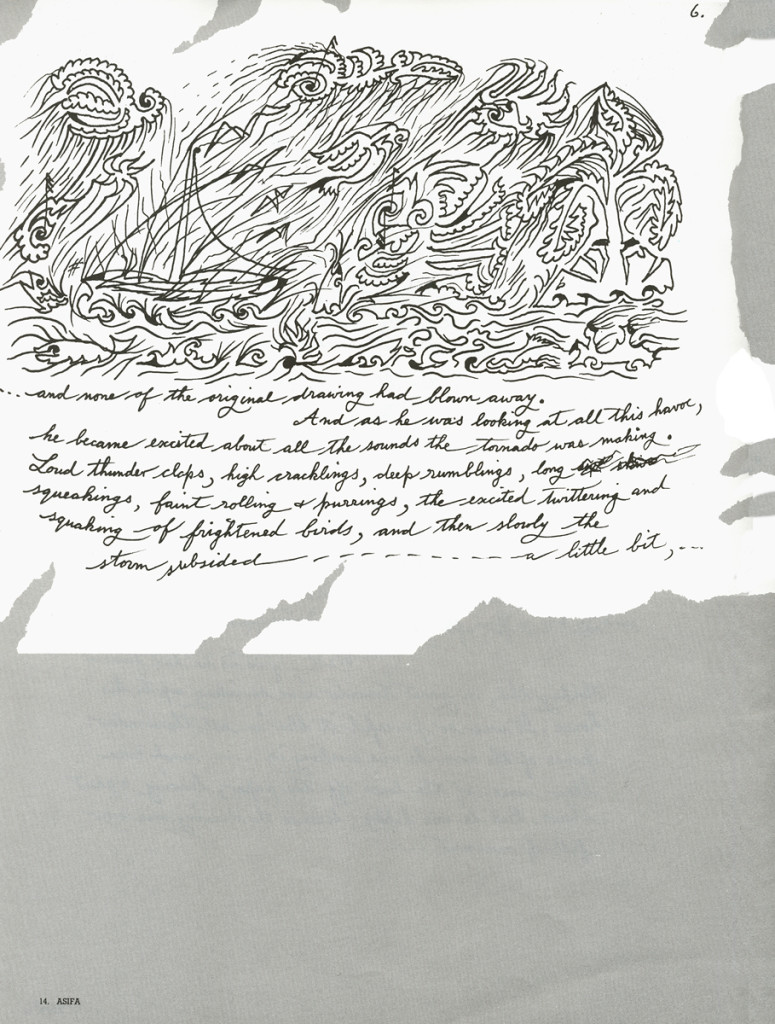 6.
... and none of the original drawing had blown away.
And as he was looking at all this havoc,
he became excited about all the sounds the tornado was making.
Loud thunder claps, high cracklings, deep rumblings, long
squeakings, faint rolling & purrings, the excited twittering and
squaking of frightened birds, and then slowly the
storm subsided ---------- a little bit, ...
14. ASIFA